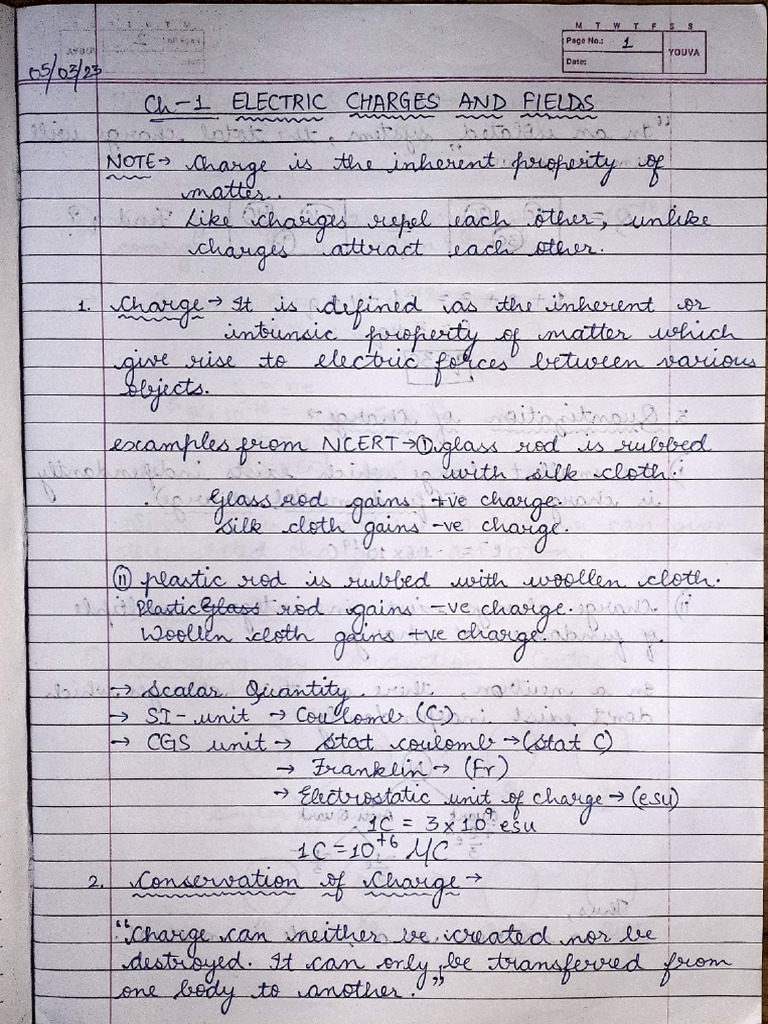 M T W T F S S
Page No.: 1
Date:
YOUVA
05/03/23
Ch-1 ELECTRIC CHARGES AND FIELDS
NOTE → Charge is the inherent property of
matter.
Like charges repel each other, unlike
charges attract each other.
1. Charge → It is defined as the inherent or
intrinsic property of matter which
give rise to electric forces between various
objects.
examples from NCERT → ①.glass rod is rubbed
with silk cloth.
Glass rod gains +ve charge.
Silk cloth gains -ve charge.
ⓘⓘ plastic rod is rubbed with woollen cloth.
Plastic Glass rod gains -ve charge.
Woollen cloth gains +ve charge.
→ Scalar Quantity.
→ SI-unit → Coulomb (C)
→ CGS unit → Stat coulomb → (stat C)
→ Franklin → (Fr)
→ Electrostatic unit of charge → (esu)
1C = 3 x 10⁹ esu
1C = 10⁺⁶ μC
2. Conservation of Charge →
"Charge can neither be created nor be
destroyed. It can only be transferred from
one body to another."